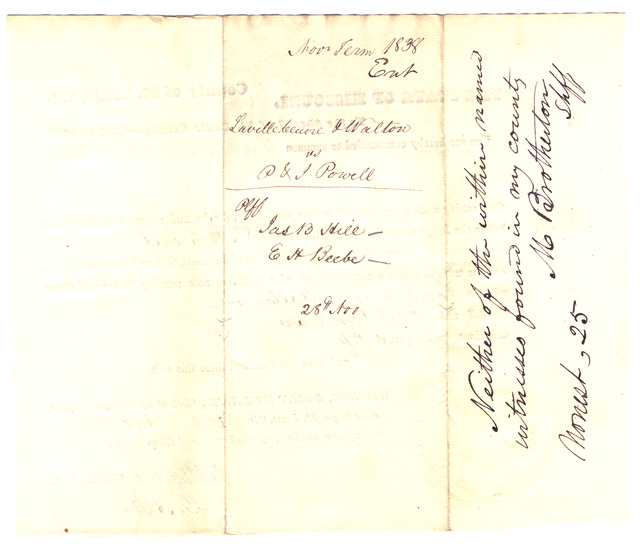 Novr Term 1838
Ent
Lavillebeuvre & Walton
vs
D & J Powell
Plff
Jas B Hill —
E H Beebe —
28th Nov
Neither of the within named
witnesses found in my county
M Brotherton
Shff
Nonest, 25